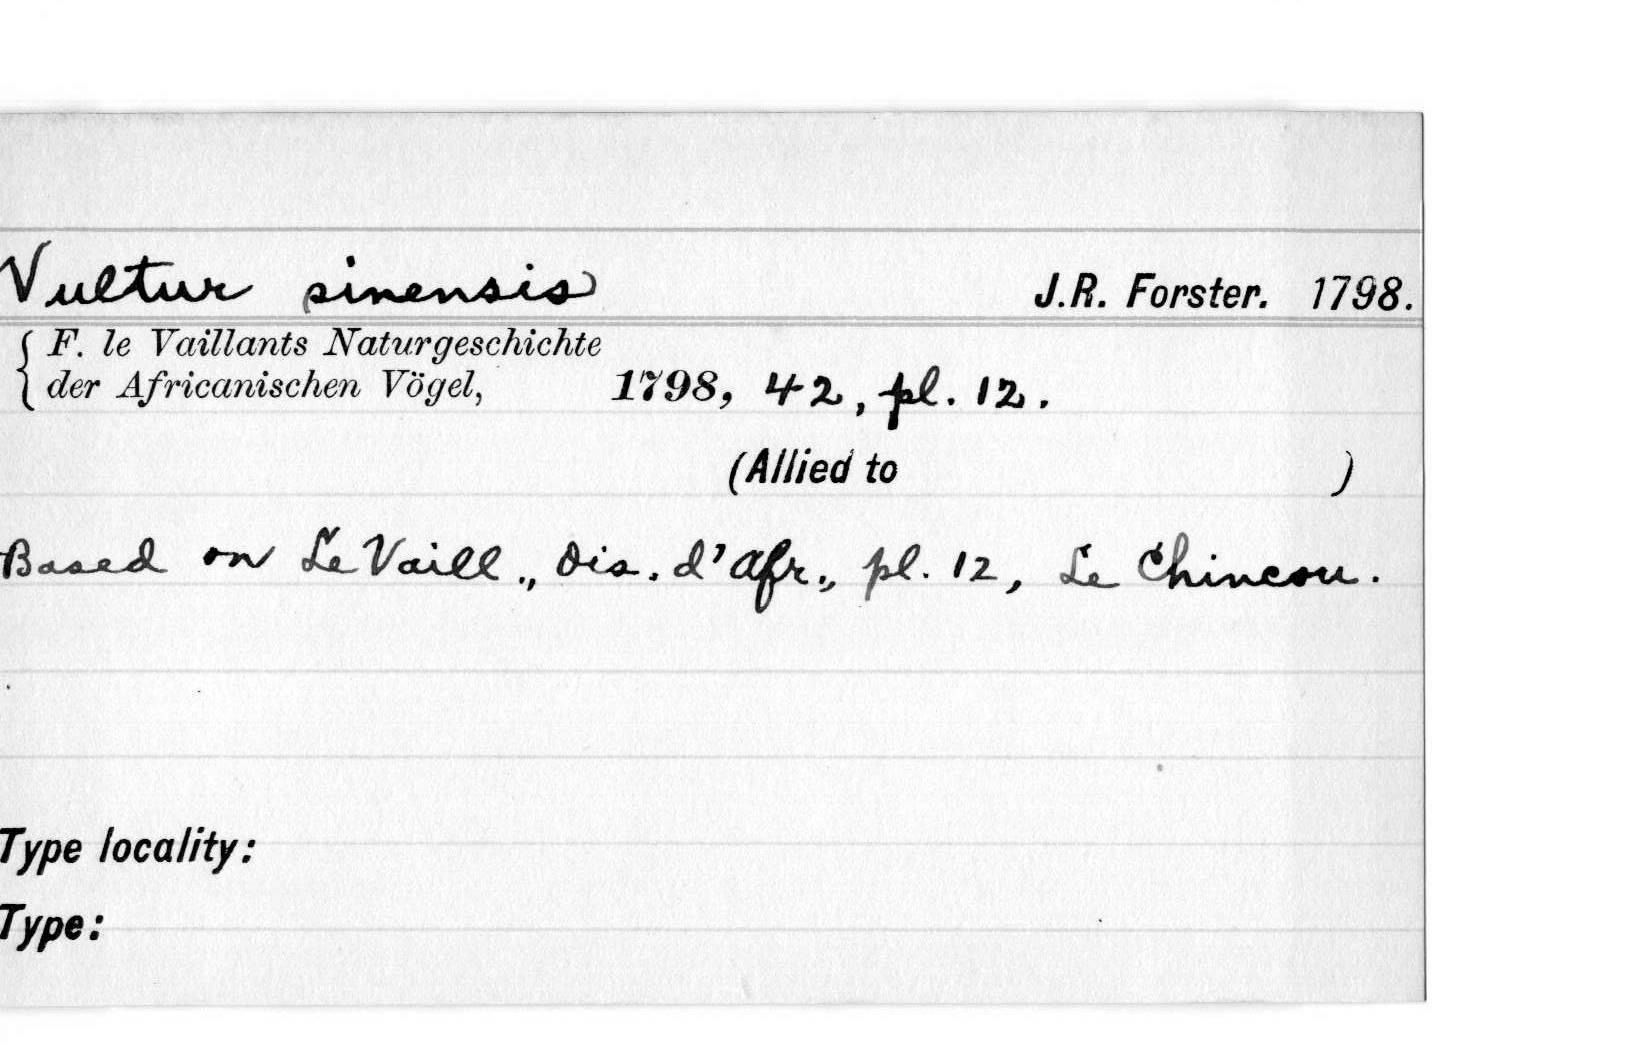 Vultur sinensis J.R. Forster. 1798.
F. le Vaillants Naturgeschichte
der Africanischen Vögel, 1798, 42, pl. 12.
(Allied to )
Based on Le Vaill., Ois. d'Afr., pl. 12, Le Chincou.
Type locality:
Type: